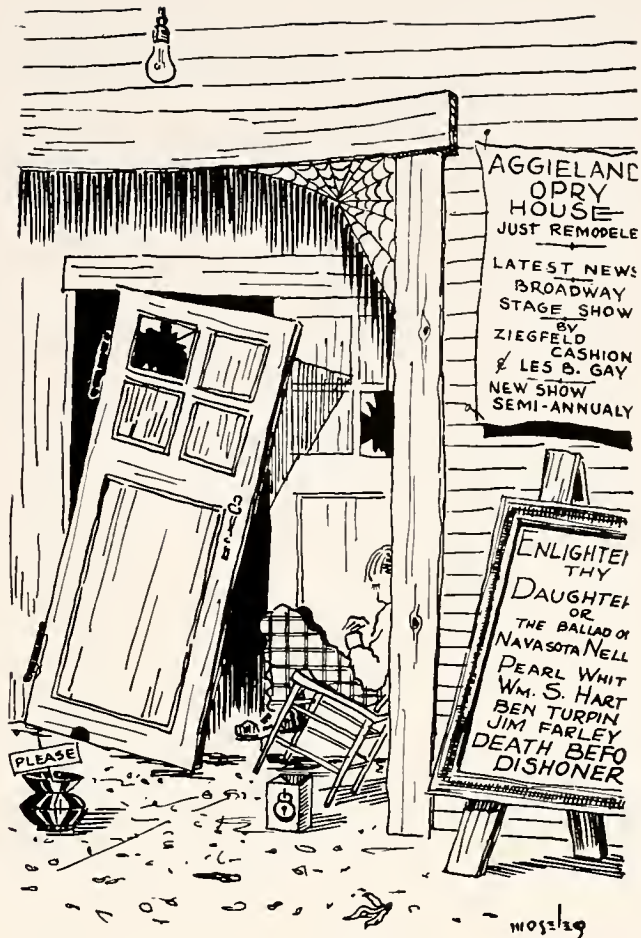 AGGIELAND
OPRY
HOUSE
JUST REMODELE
LATEST NEWS
BROADWAY
STAGE SHOW
BY
ZIEGFELD
CASHION
& LES B. GAY
NEW SHOW
SEMI-ANNUALY
ENLIGHTEN
THY
DAUGHTER
OR
THE BALLAD OF
NAVASOTA NELL
PEARL WHIT
WM. S. HART
BEN TURPIN
JIM FARLEY
DEATH BEFO
DISHONER
PLEASE
moseley